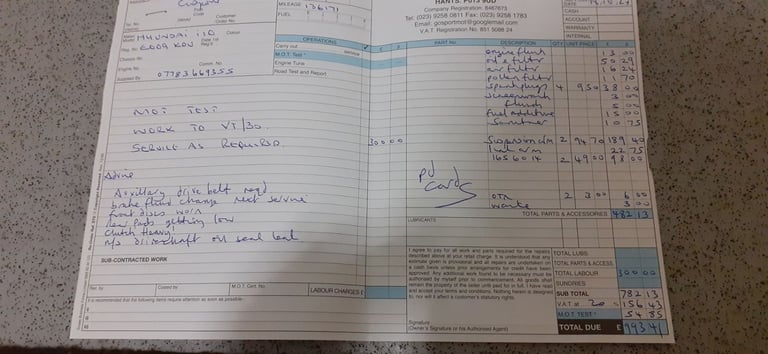 MILEAGE 136171
FUEL
HANTS. PO13 9UD
Company Registration 8487673
Tel: (023) 9258 0811 Fax: (023) 9258 1783
Email: gosportmot@googlemail.com
V.A.T. Registration No. 851 5086 24
CASH
ACCOUNT
WARRANTY
INTERNAL
Tel. No.
Customer Order No.
HYUNDAI i10
Colour
Reg. No.
Chassis No.
Engine No.
Comm. No.
Supplied By 07783669355
OPERATIONS
Carry out service
M.O.T. Test
Engine Tune
Road Test and Report
Part No. DESCRIPTION QTY UNIT PRICE £ p
engine flush 13 00
oil filter
air filter 16 24
pollen filter 11 70
Spark plugs 4 9 50 38 00
screenwash 3 00
fluids 5 00
fuel additive 15 00
10 75
Suspension arm 2 94 70 189 40
link arm 22 75
1656014 2 49 00 98 00
OTR 2 3 00 6 00
waste 3 00
MOT TEST
WORK TO VT/30
SERVICE AS REQUIRED. 300 00
pd
Card
Advise
Auxillary drive belt reqd
brake fluid change next service
front discs worn
rear pads getting low
Clutch Heavy
n/s driveshaft oil seal leak
TOTAL PARTS & ACCESSORIES 482 13
LUBRICANTS
SUB-CONTRACTED WORK
I agree to pay for all work and parts required for the repairs
described above at your retail charge. It is understood that any
estimate given is provisional and all repairs are undertaken on
a cash basis unless prior arrangements for credit have been
approved. Any additional work found to be necessary must be
authorised by myself prior to commencement. All goods shall
remain the property of the seller until paid for in full. I have read
and accept your terms and conditions. Nothing herein is designed
to, nor will it affect a customer's statutory rights.
TOTAL LUBS.
TOTAL PARTS & ACCESS
TOTAL LABOUR 300 00
SUNDRIES
SUB TOTAL 782 13
V.A.T at 20 % 156 43
M.O.T TEST 54 85
TOTAL DUE £ 993 41
Rec. by Costed by M.O.T. Cert. No. LABOUR CHARGES £
It is recommended that the following items require attention as soon as possible:-
Signature
(Owner's Signature or his Authorised Agent)